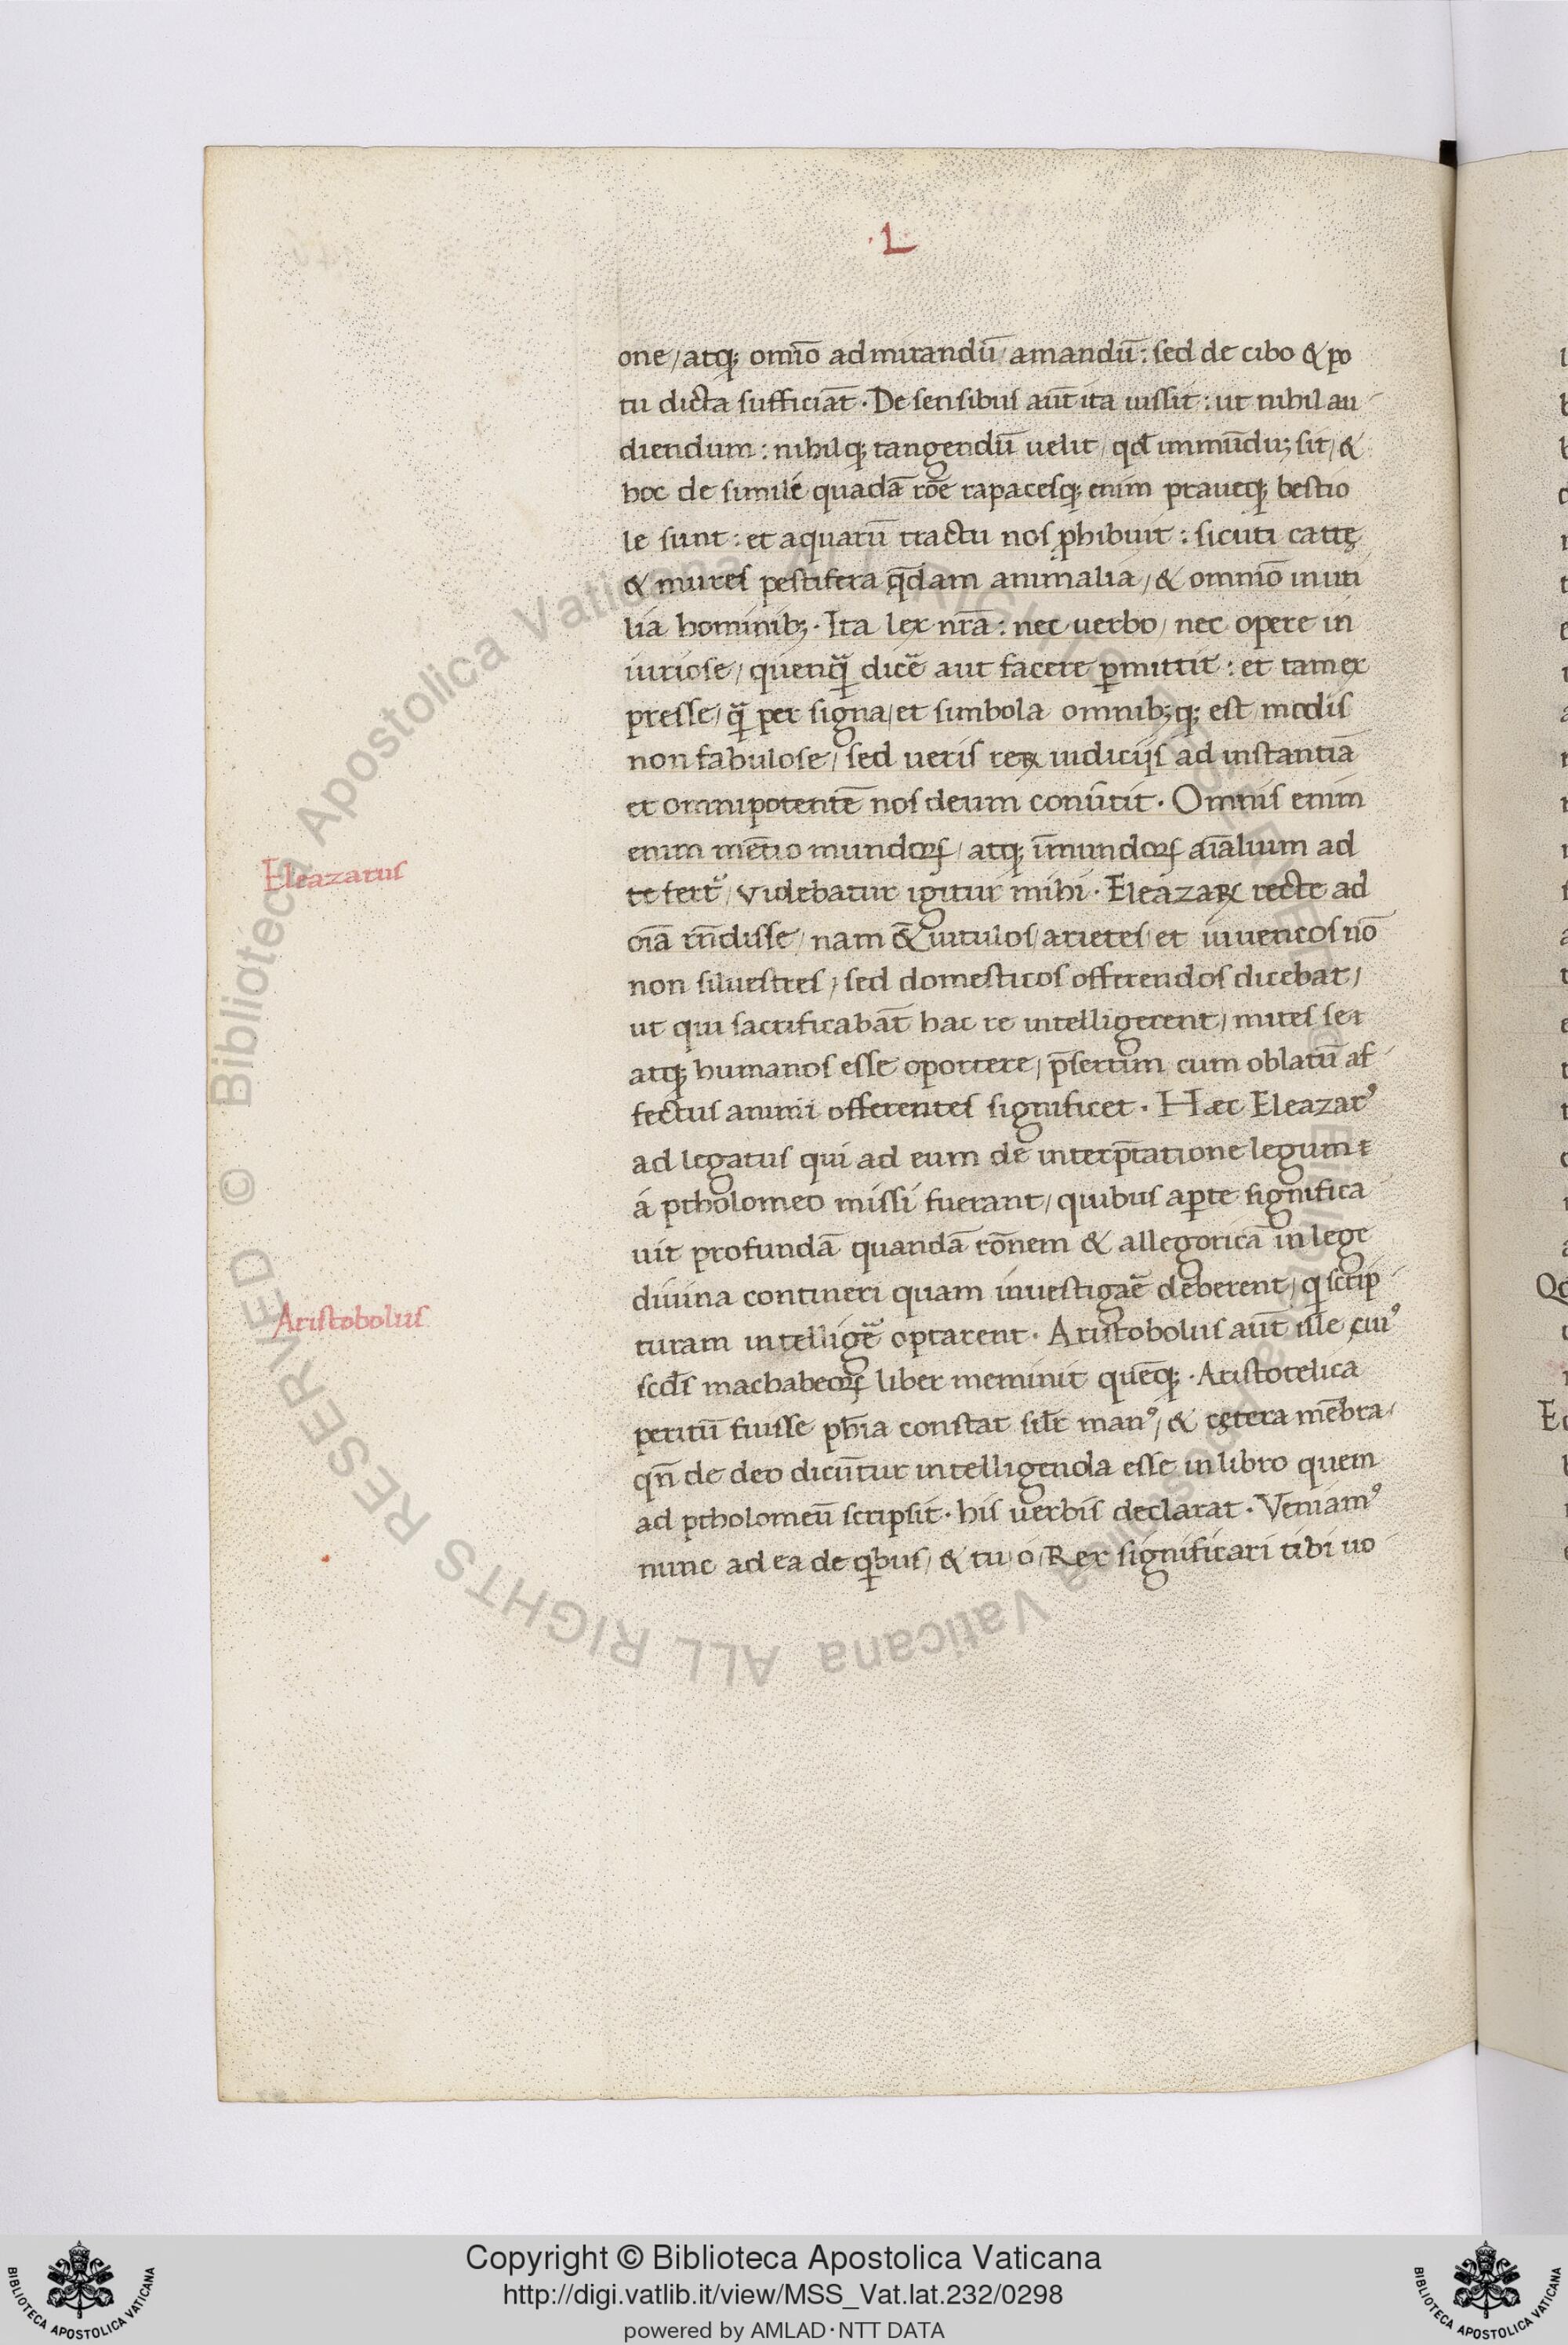 ·L·
one/atq; omīo admirandū/amandū: sed de cibo & po
tu dicta sufficiāt · De sensibus aūt ita iussit: ut nihil au
diendum: nihilq; tangendū uelit/ qd̄ immūdu; sit/ &
hoc de simile quadā rōe rapacesq; enim praueq; bestio
le sunt: et aquarū tractu nos phibuit: sicuti cattę
& mures pestifera q̄dam animalia/ & omnīo inuti
lia hominib; · Ita lex nr̄a: nec uerbo/ nec opere in
iuriose/ quenq̄ dicē aut facere ꝑmittit: et tam ex
presse/ q̄ per signa/et simbola omnib;q; est modis
non fabulose/ sed ueris reꝝ iudicijs ad instantiā
et omnipotentē nos deum conūtit · Omnis enim
enim mētio mundoꝝ/ atq; īmundoꝝ aīalium ad
te fert̄/ Videbatur igitur mihi · Eleazaꝝ recte ad
oīa rn̄disse/ nam & uitulos/arietes/et iuuencos nō
non siluestres/ sed domesticos offerendos dicebat/
ut qui sacrificabāt hac re intelligerent/ mites se
atq; humanos esse oportere/ p̄sertim cum oblatū af
fectus animi offerentes significet · Hæc Eleazarꝰ
ad legatus qui ad eum de interp̄tatione legum
á ptholomeo missi fuerant/ quibus aꝑte significa
uit profundā quandā rōnem & allegoricā in lege
diuina contineri quam inuestigaē deberent/ q scrip
turam intelligē optarent · Aristobolus aūt ille cuiꝰ
scd̄s machabeoꝝ liber meminit quēq; · Aristotelica
peritū fuisse ph̄ia constat sil̄r manꝰ/ & cętera mēbra/
qn̄ de deo dicūtur intelligenda esse in libro quem
ad ptholomeū scripsit · his uerbis declarat · Veniamꝰ
nunc ad ea de qbus/ & tu o/Rex significari tibi uo
Eleazarus
Aristobolus
© Biblioteca Apostolica Vaticana ALL RIGHTS RESERVED © Biblioteca Apostolica Vaticana ALL RIGHTS RESERVED
Copyright © Biblioteca Apostolica Vaticana
http://digi.vatlib.it/view/MSS_Vat.lat.232/0298
powered by AMLAD·NTT DATA
BIBLIOTECA APOSTOLICA VATICANA
BIBLIOTECA APOSTOLICA VATICANA